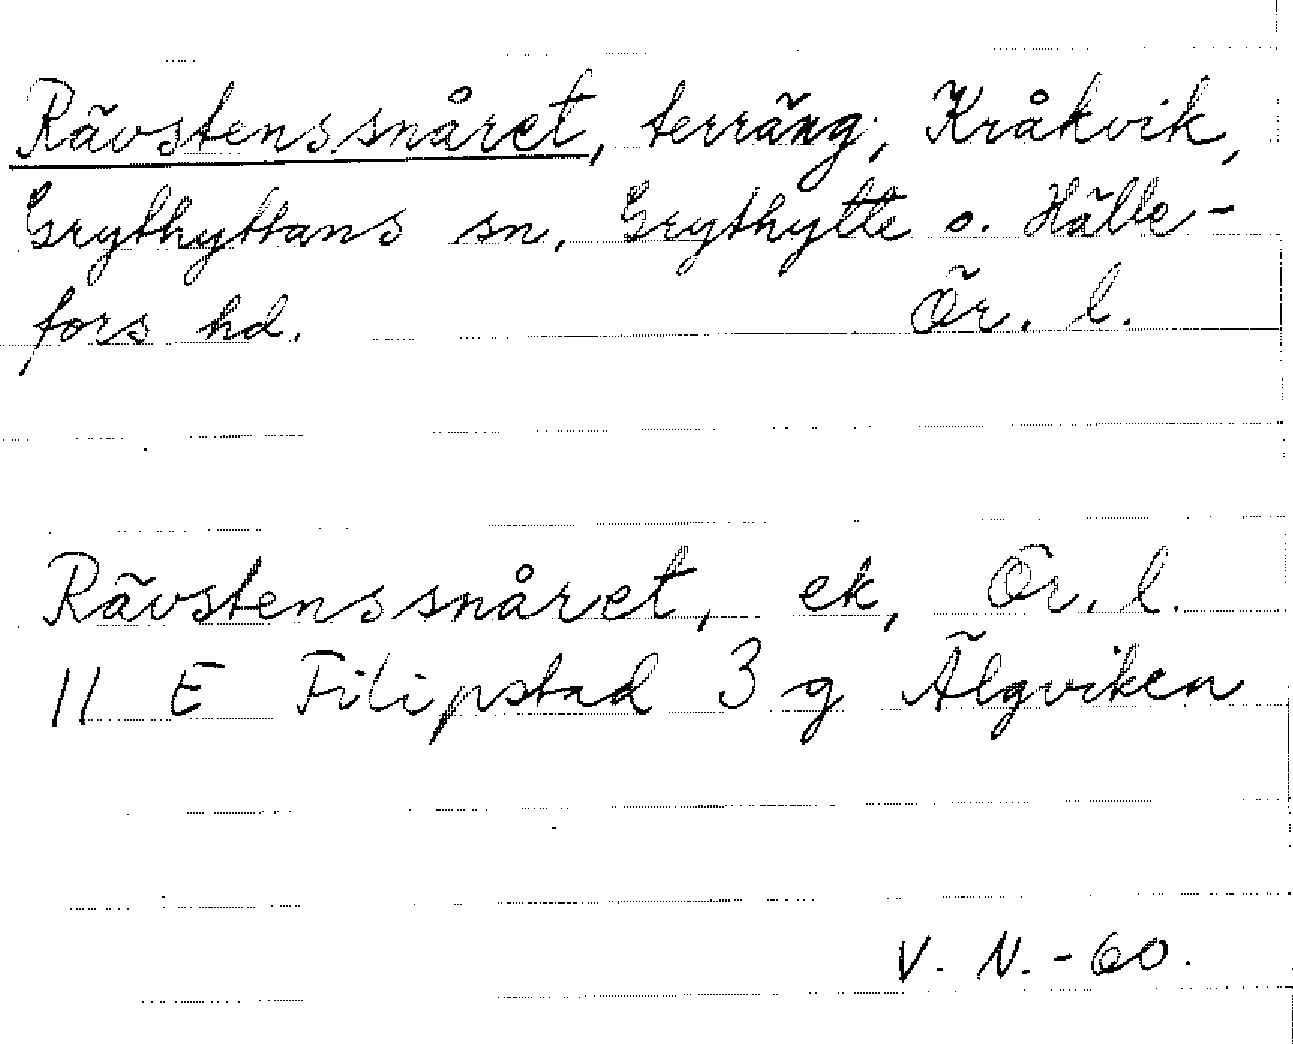 Rävstenssnåret, terräng, Kråkvik,
Grythyttans sn. Grythytte o. Hälle-
fors hd. Ör. l.
Rävstenssnåret, ek, Ör. l.
11 E Filipstad 3 g Älgviken
V. N. - 60.